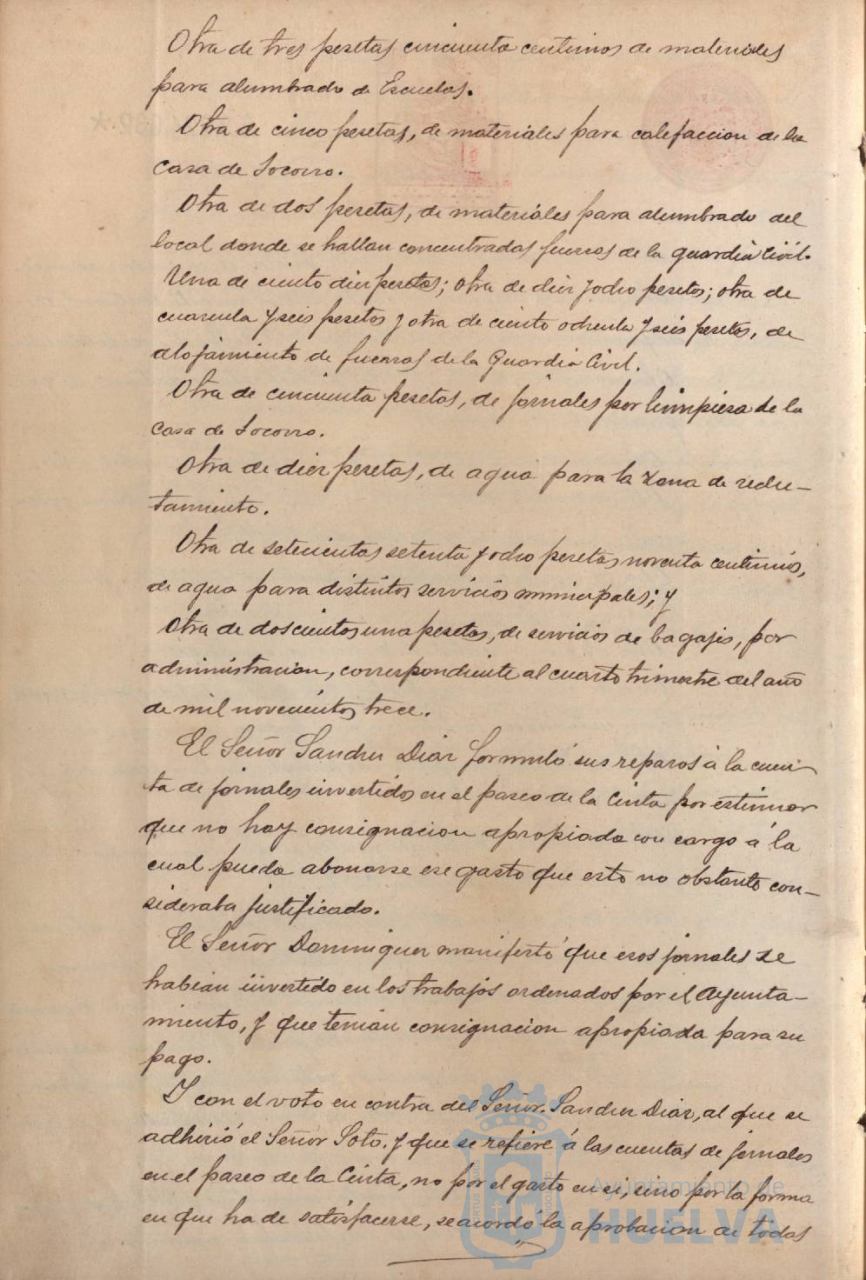 Otra de tres pesetas cincuenta centimos de materiales
para alumbrado de Escuelas.
Otra de cinco pesetas, de materiales para calefaccion de la
Casa de Socorro.
Otra de dos pesetas, de materiales para alumbrado del
local donde se hallan concentradas fuerzas de la guardia Civil.
Una de ciento diez pesetas; otra de diez y ocho pesetas; otra de
cuarenta y seis pesetas y otra de ciento ochenta y seis pesetas, de
alojamiento de fuerzas de la Guardia Civil.
Otra de cincuenta pesetas, de jornales por limpieza de la
Casa de Socorro.
Otra de diez pesetas, de agua para la zona de reclu-
tamiento.
Otra de setecientas setenta y ocho pesetas noventa centimos,
de agua para distintos servicios municipales; y
Otra de doscientos una pesetas, de servicios de bagajes, por
administracion, correspondiente al cuarto trimestre del año
de mil novecientos trece.
El Señor Sanchez Diaz formuló sus reparos á la cuen-
ta de jornales invertidos en el paseo de la Cinta por estimar
que no hay consignacion apropiada con cargo á la
cual pueda abonarse ese gasto que esto no obstante con-
sideraba justificado.
El Señor Dominguez manifestó que esos jornales se
habian invertido en los trabajos ordenados por el Ayunta-
miento, y que tenian consignacion apropiada para su
pago.
Y con el voto en contra del Señor Sanchez Diaz, al que se
adhirió el Señor Soto. y que se refiere á las cuentas de jornales
en el paseo de la Cinta, no por el gasto en si, sino por la forma
en que ha de satisfacerse, se acordó la aprobacion de todas
Ayuntamiento de
HUELVA